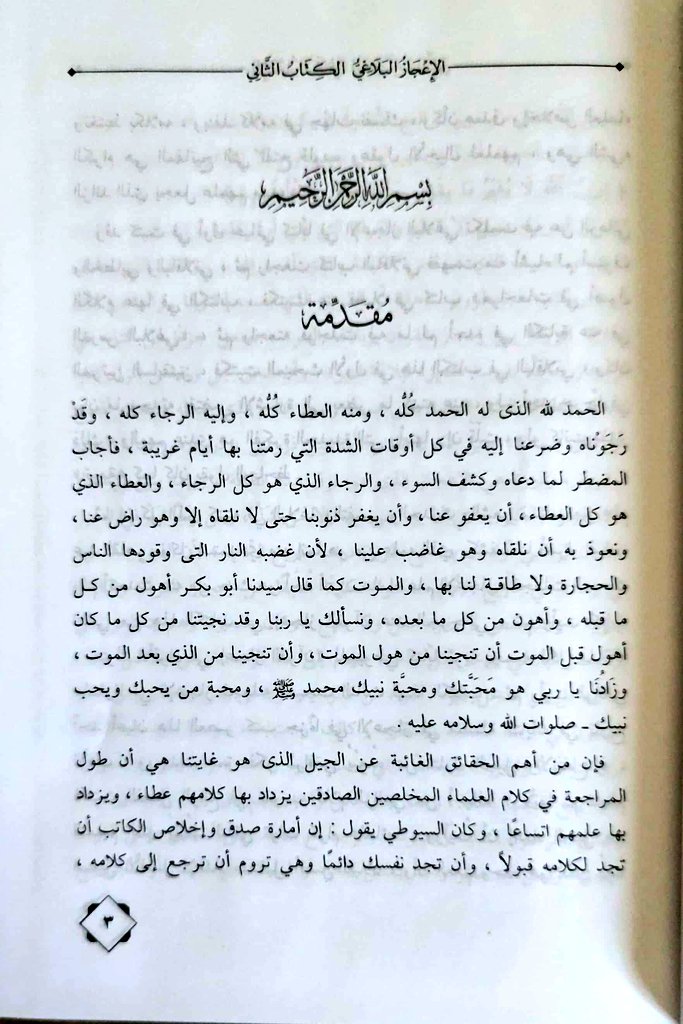 الإعجاز البلاغي الكتاب الثاني
بسم الله الرحمن الرحيم
مُقدِّمة
الحمد لله الذى له الحمد كلُّه ، ومنه العطاء كُلُّه ، وإليه الرجاء كله ، وقدْ
رَجَوْناه وضرعنا إليه في كل أوقات الشدة التي رمتنا بها أيام غريبة ، فأجاب
المضطر لما دعاه وكشف السوء ، والرجاء الذي هو كل الرجاء ، والعطاء الذي
هو كل العطاء ، أن يعفو عنا ، وأن يغفر ذنوبنا حتى لا نلقاه إلا وهو راض عنا ،
ونعوذ به أن نلقاه وهو غاضب علينا ، لأن غضبه النار التى وقودها الناس
والحجارة ولا طاقة لنا بها ، والموت كما قال سيدنا أبو بكر أهول من كل
ما قبله ، وأهون من كل ما بعده ، ونسألك يا ربنا وقد نجيتنا من كل ما كان
أهول قبل الموت أن تنجينا من هول الموت ، وأن تنجينا من الذي بعد الموت ،
وزَادُنَا يا ربي هو مَحَبَّتك ومحبَّة نبيك محمد ﷺ ، ومحبة من يحبك ويحب
نبيك ـ صلوات الله وسلامه عليه .
فإن من أهم الحقائق الغائبة عن الجيل الذى هو غايتنا هي أن طول
المراجعة في كلام العلماء المخلصين الصادقين يزداد بها كلامهم عطاء ، ويزداد
بها علمهم اتساعًا ، وكان السيوطي يقول : إن أمارة صدق وإخلاص الكاتب أن
تجد لكلامه قبولاً ، وأن تجد نفسك دائمًا وهي تروم أن ترجع إلى كلامه ،
٣